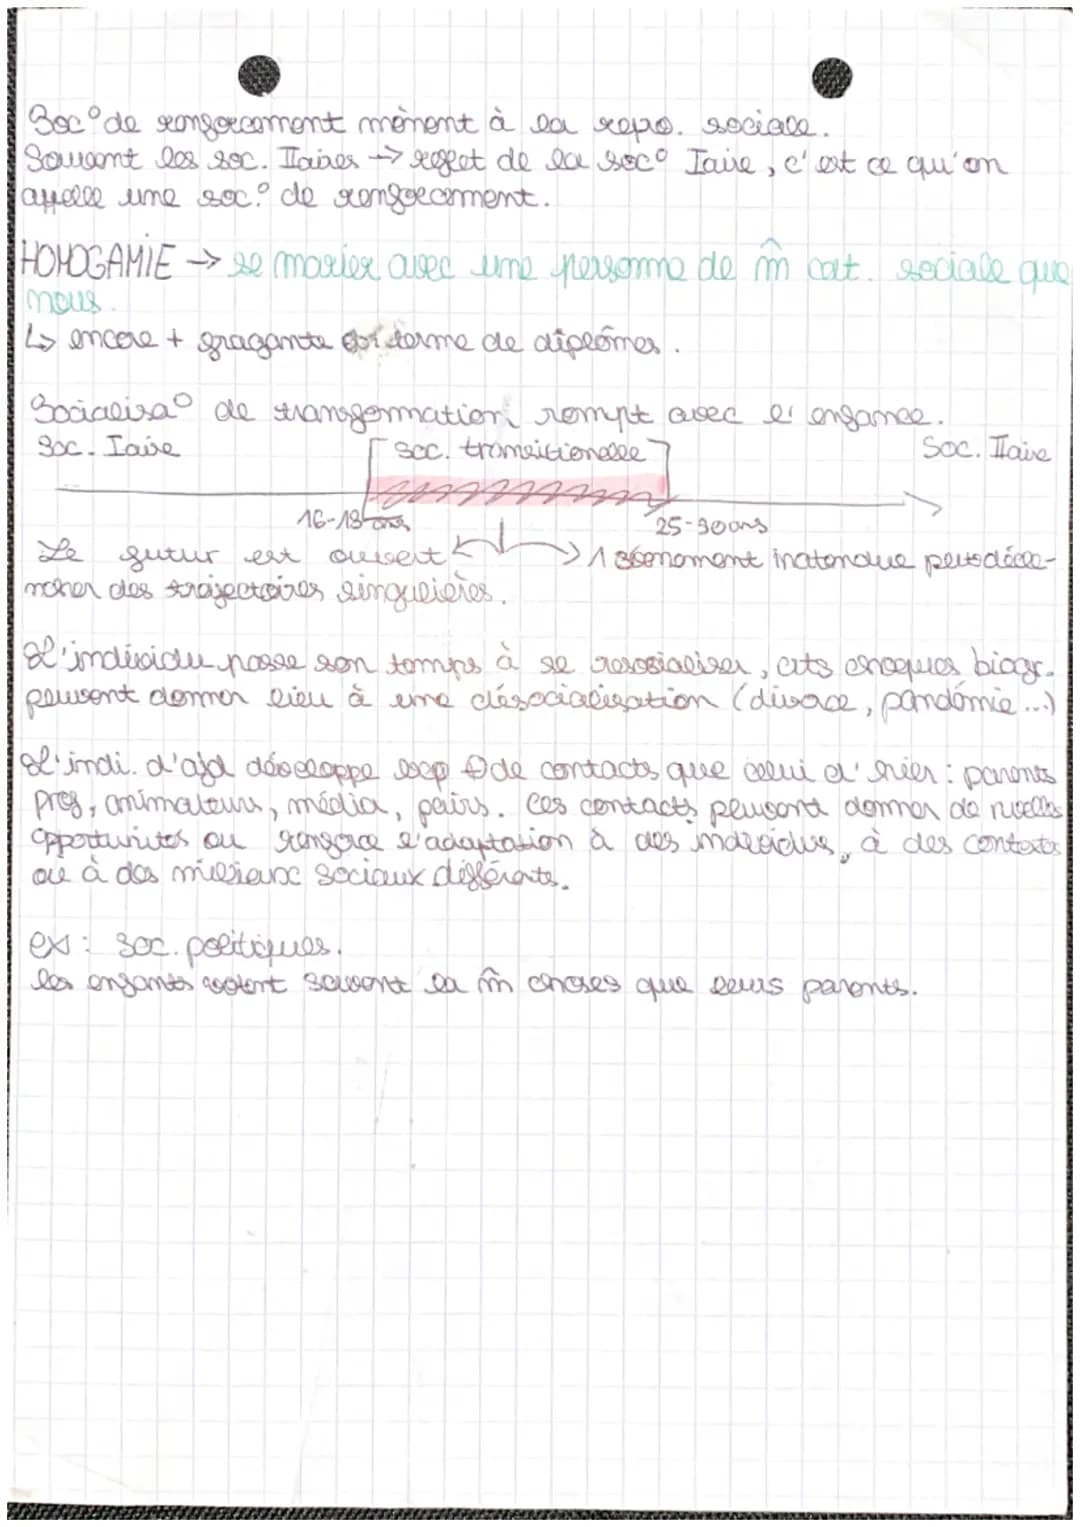 Soc° de renforcement mènent à la repro. sociale.
Souvent les soc. IIaires → reflet de la soc° Iaire, c'est ce qu'on
appelle une soc° de renforcement.
HOMOGAMIE → se marier avec une personne de m̂ cat. sociale que
nous.
↳ encore + fragante en terme de diplômes.
Socialisa° de transformation rompt avec l'enfance.
Soc. Iaire [soc. transitionelle] Soc. IIaire
16-18 ans 25-30ans
Le futur est ouvert ← → 1 évènement inatendue peut déclen-
ncher des trajectoires singulières.
L'individu passe son temps à se resocialiser, crts chocs biogr.
peuvent donner lieu à une désocialisation (divorce, pandémie...)
L'indi. d'ajd développe bcp + de contacts que celui d'hier : parents
prof, animateurs, média, pairs. Ces contacts peuvent donner de nvelles
opportunités ou renforce l'adaptation à des individus, à des contexts
ou à des milieux sociaux différents.
ex : soc. politiques.
les enfants votent souvent la m̂ choses que leurs parents.